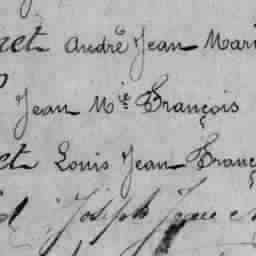 ret André Jean Mari
Jean Mie François
et Louis Jean Franç
d Joseph Jean